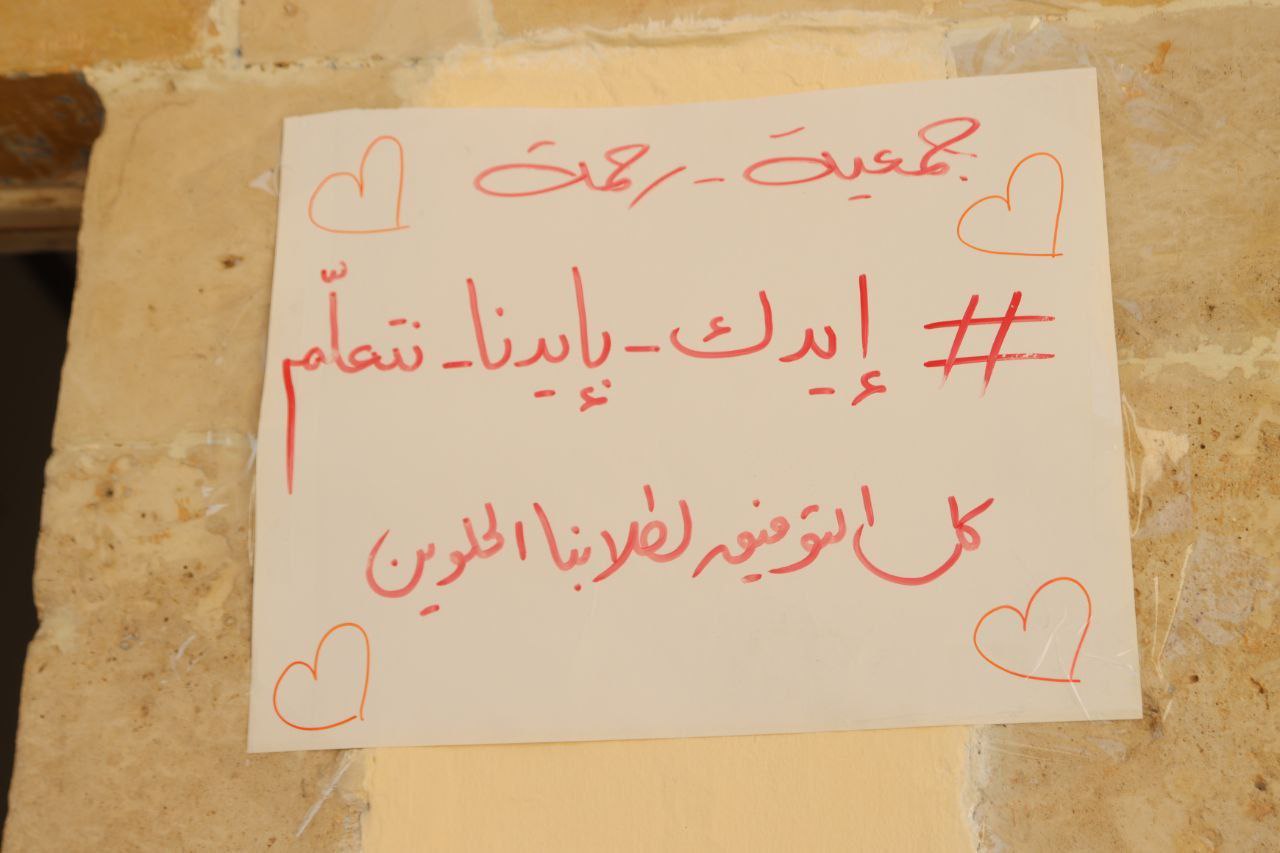 جمعية - رحمة
# إيدك - بإيدنا - نتعلّم
كل التوفيق لطلابنا الحلوين